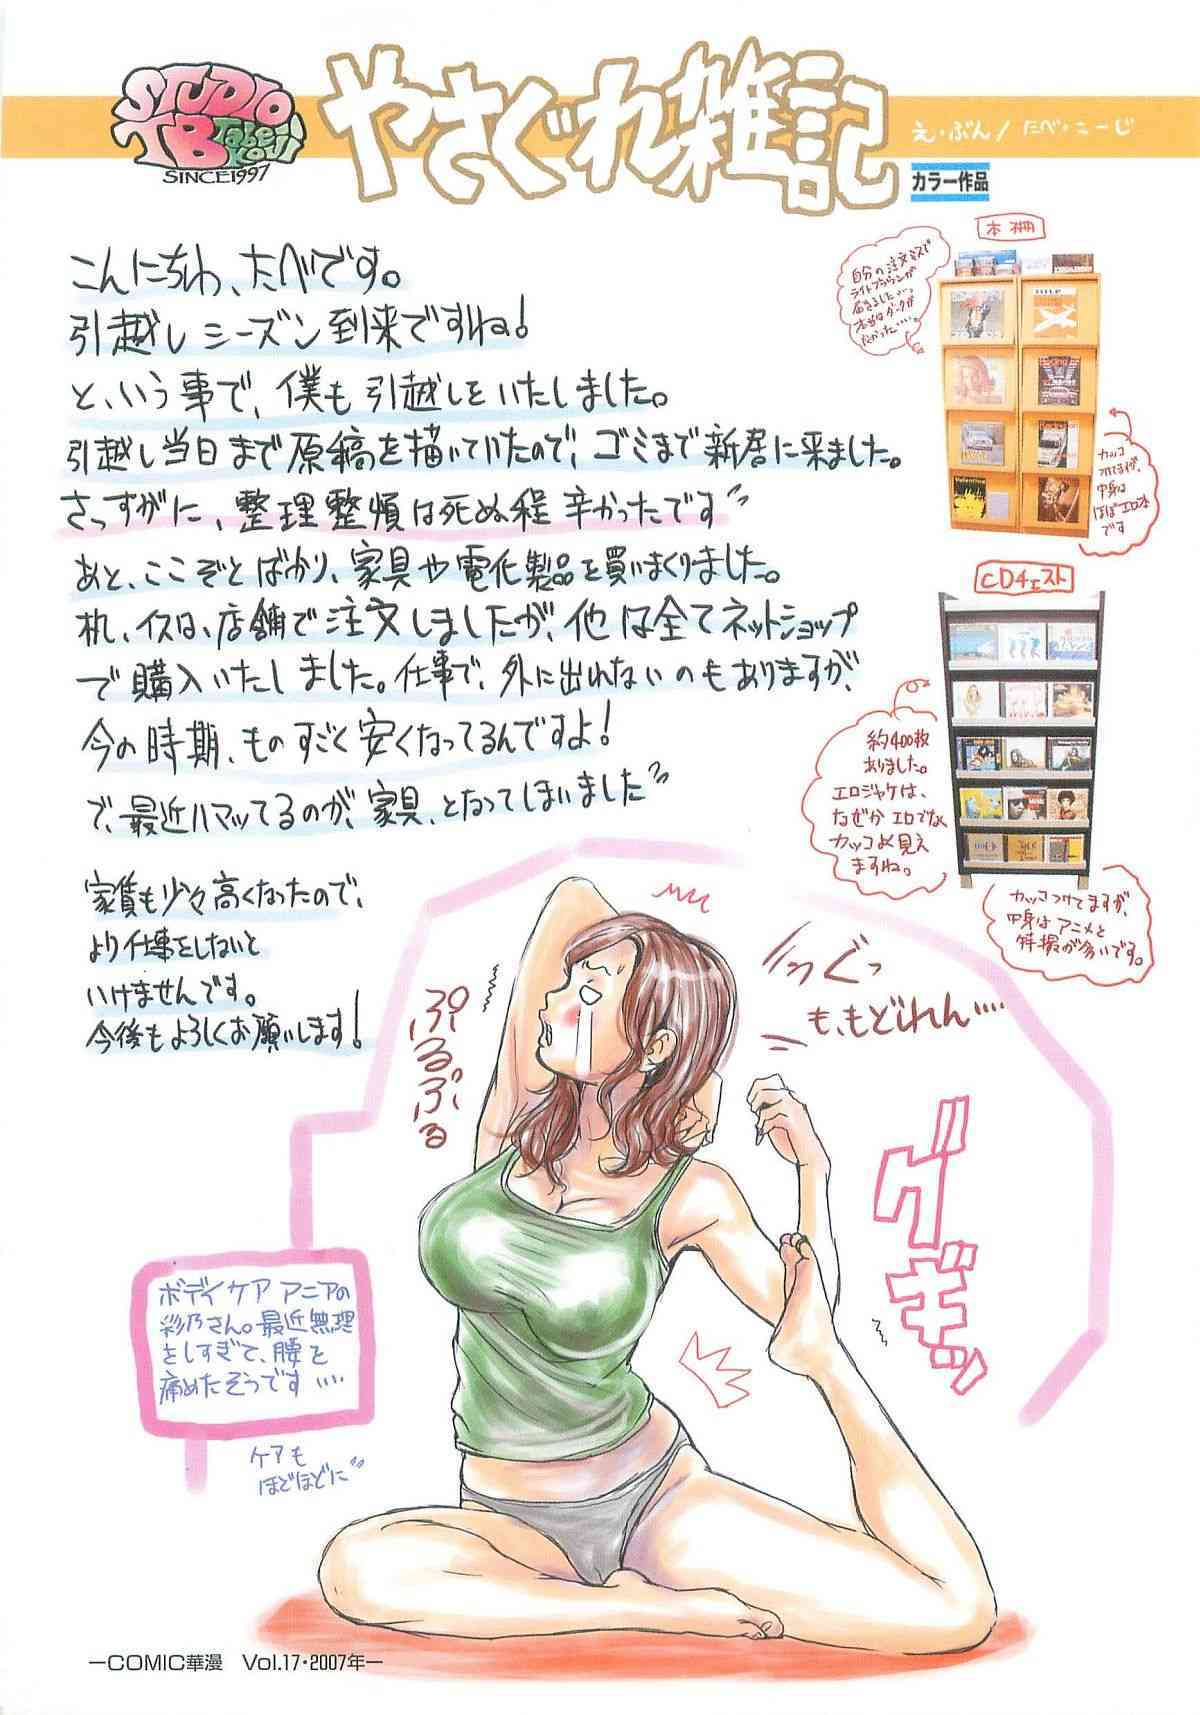 STUDIO
TB
Tabe
Koji
SINCE1997
やさぐれ雑記
え・ぶん/たべ・こーじ
カラー作品
こんにちわ、たべです。
引越しシーズン到来ですね!
と、いう事で、僕も引越しをいたしました。
引越し当日まで原稿を描いていたので、ゴミまで新居に来ました。
さっすがに、整理整頓は死ぬ程辛かったです
あと、ここぞとばかり、家具や電化製品を買いまくりました。
机、イスは、店舗で注文しましたが、他は全てネットショップ
で購入いたしました。仕事で、外に出れないのもありますが、
今の時期、ものすごく安くなってるんですよ!
で、最近ハマッてるのが、家具、となってしまいました
家賃も少々高くなったので、
より仕事をしないと
いけませんです。
今後もよろしくお願いします!
本棚
自分の注文ミスで
ライトブラウンが
届きました…
本当はダークが
よかった‥‥
カッコ
つけてますが、
中身は
ほぼエロ本
です
CDチェスト
約400枚
ありました。
エロジャケは、
なぜかエロでなく
カッコよく見え
ますね。
カッコつけてますが、
中身はアニメと
特撮が多いです。
ぷるぷる
っぐっ
も、もどれん‥‥
グギッ
ボディケア マニアの
彩乃さん。最近無理
をしすぎて、腰を
痛めたそうです‥‥
ケアも
ほどほどに
ーCOMIC華漫 Vol.17・2007年ー